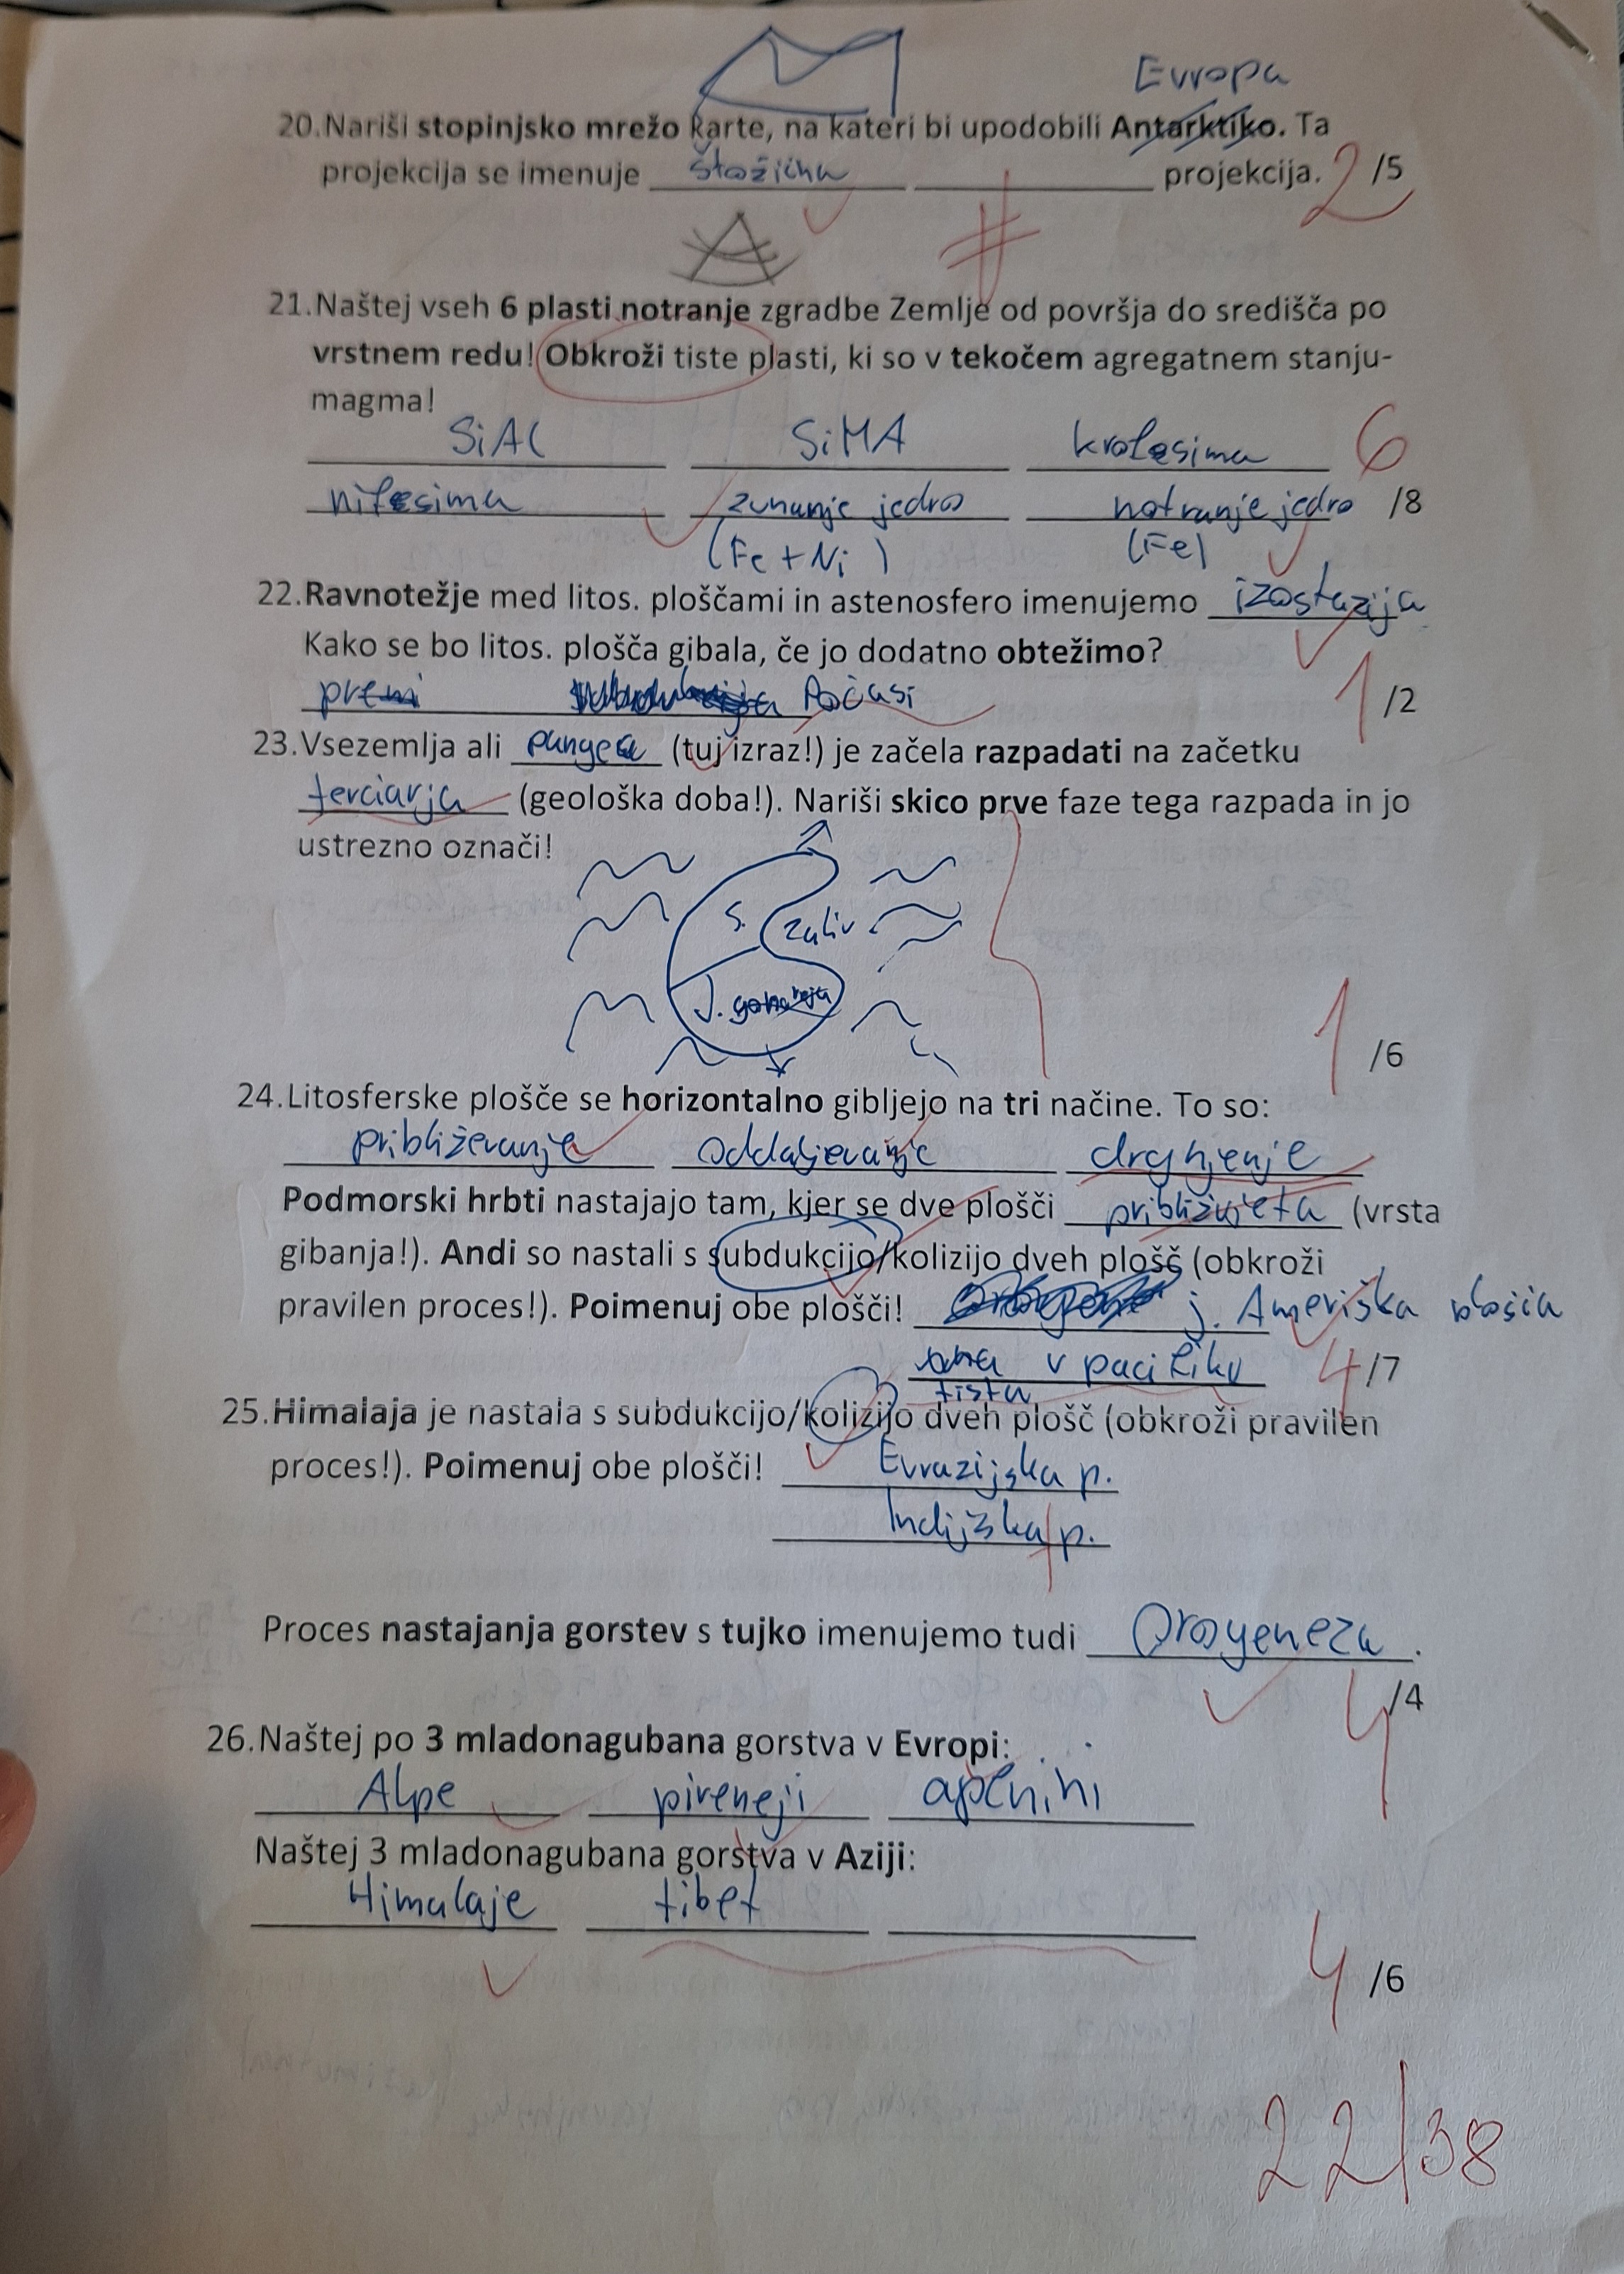 Evropa
20.Nariši stopinjsko mrežo karte, na kateri bi upodobili Antarktiko. Ta
projekcija se imenuje stožična ___ projekcija. 2 /5
21.Naštej vseh 6 plasti notranje zgradbe Zemlje od površja do središča po
vrstnem redu! Obkroži tiste plasti, ki so v tekočem agregatnem stanju-
magma!
SiAl SiMA krofesima 6
nifesima zunanje jedro notranje jedro /8
(Fe + Ni) (Fe)
22.Ravnotežje med litos. ploščami in astenosfero imenujemo izostazija
Kako se bo litos. plošča gibala, če jo dodatno obtežimo?
Počasi 1 /2
23.Vsezemlja ali pangea (tuj izraz!) je začela razpadati na začetku
terciarja (geološka doba!). Nariši skico prve faze tega razpada in jo
ustrezno označi!
S. zaliv
J.
1 /6
24.Litosferske plošče se horizontalno gibljejo na tri načine. To so:
približevanje oddaljevanje drgnjenje
Podmorski hrbti nastajajo tam, kjer se dve plošči približujeta (vrsta
gibanja!). Andi so nastali s subdukcijo/kolizijo dveh plošč (obkroži
pravilen proces!). Poimenuj obe plošči! j. Ameriška plošča
v pacifiku 4/7
tista
25.Himalaja je nastala s subdukcijo/kolizijo dveh plošč (obkroži pravilen
proces!). Poimenuj obe plošči! Evrazijska p.
Indijska p.
Proces nastajanja gorstev s tujko imenujemo tudi Orogeneza.
4 /4
26.Naštej po 3 mladonagubana gorstva v Evropi:
Alpe pireneji apenini
Naštej 3 mladonagubana gorstva v Aziji:
Himalaje tibet
4 /6
22/38